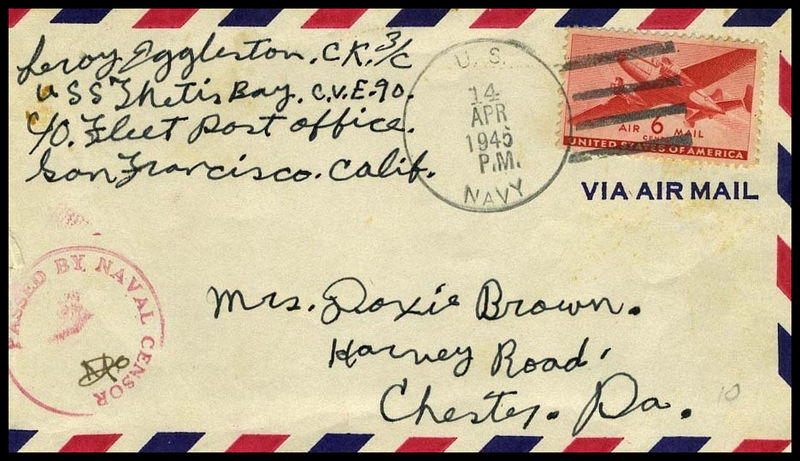 Leroy Eggleston. CK. 3/c
U S S Thetis Bay. C.V.E-90.
C/O. Fleet Post office.
San Francisco. Calif.
U. S.
14
APR
1945
P.M.
NAVY
AIR 6 MAIL
CENTS
UNITED STATES OF AMERICA
VIA AIR MAIL
PASSED BY NAVAL CENSOR
Mrs. Doxie Brown.
Harvey Road.
Chester. Pa.
10